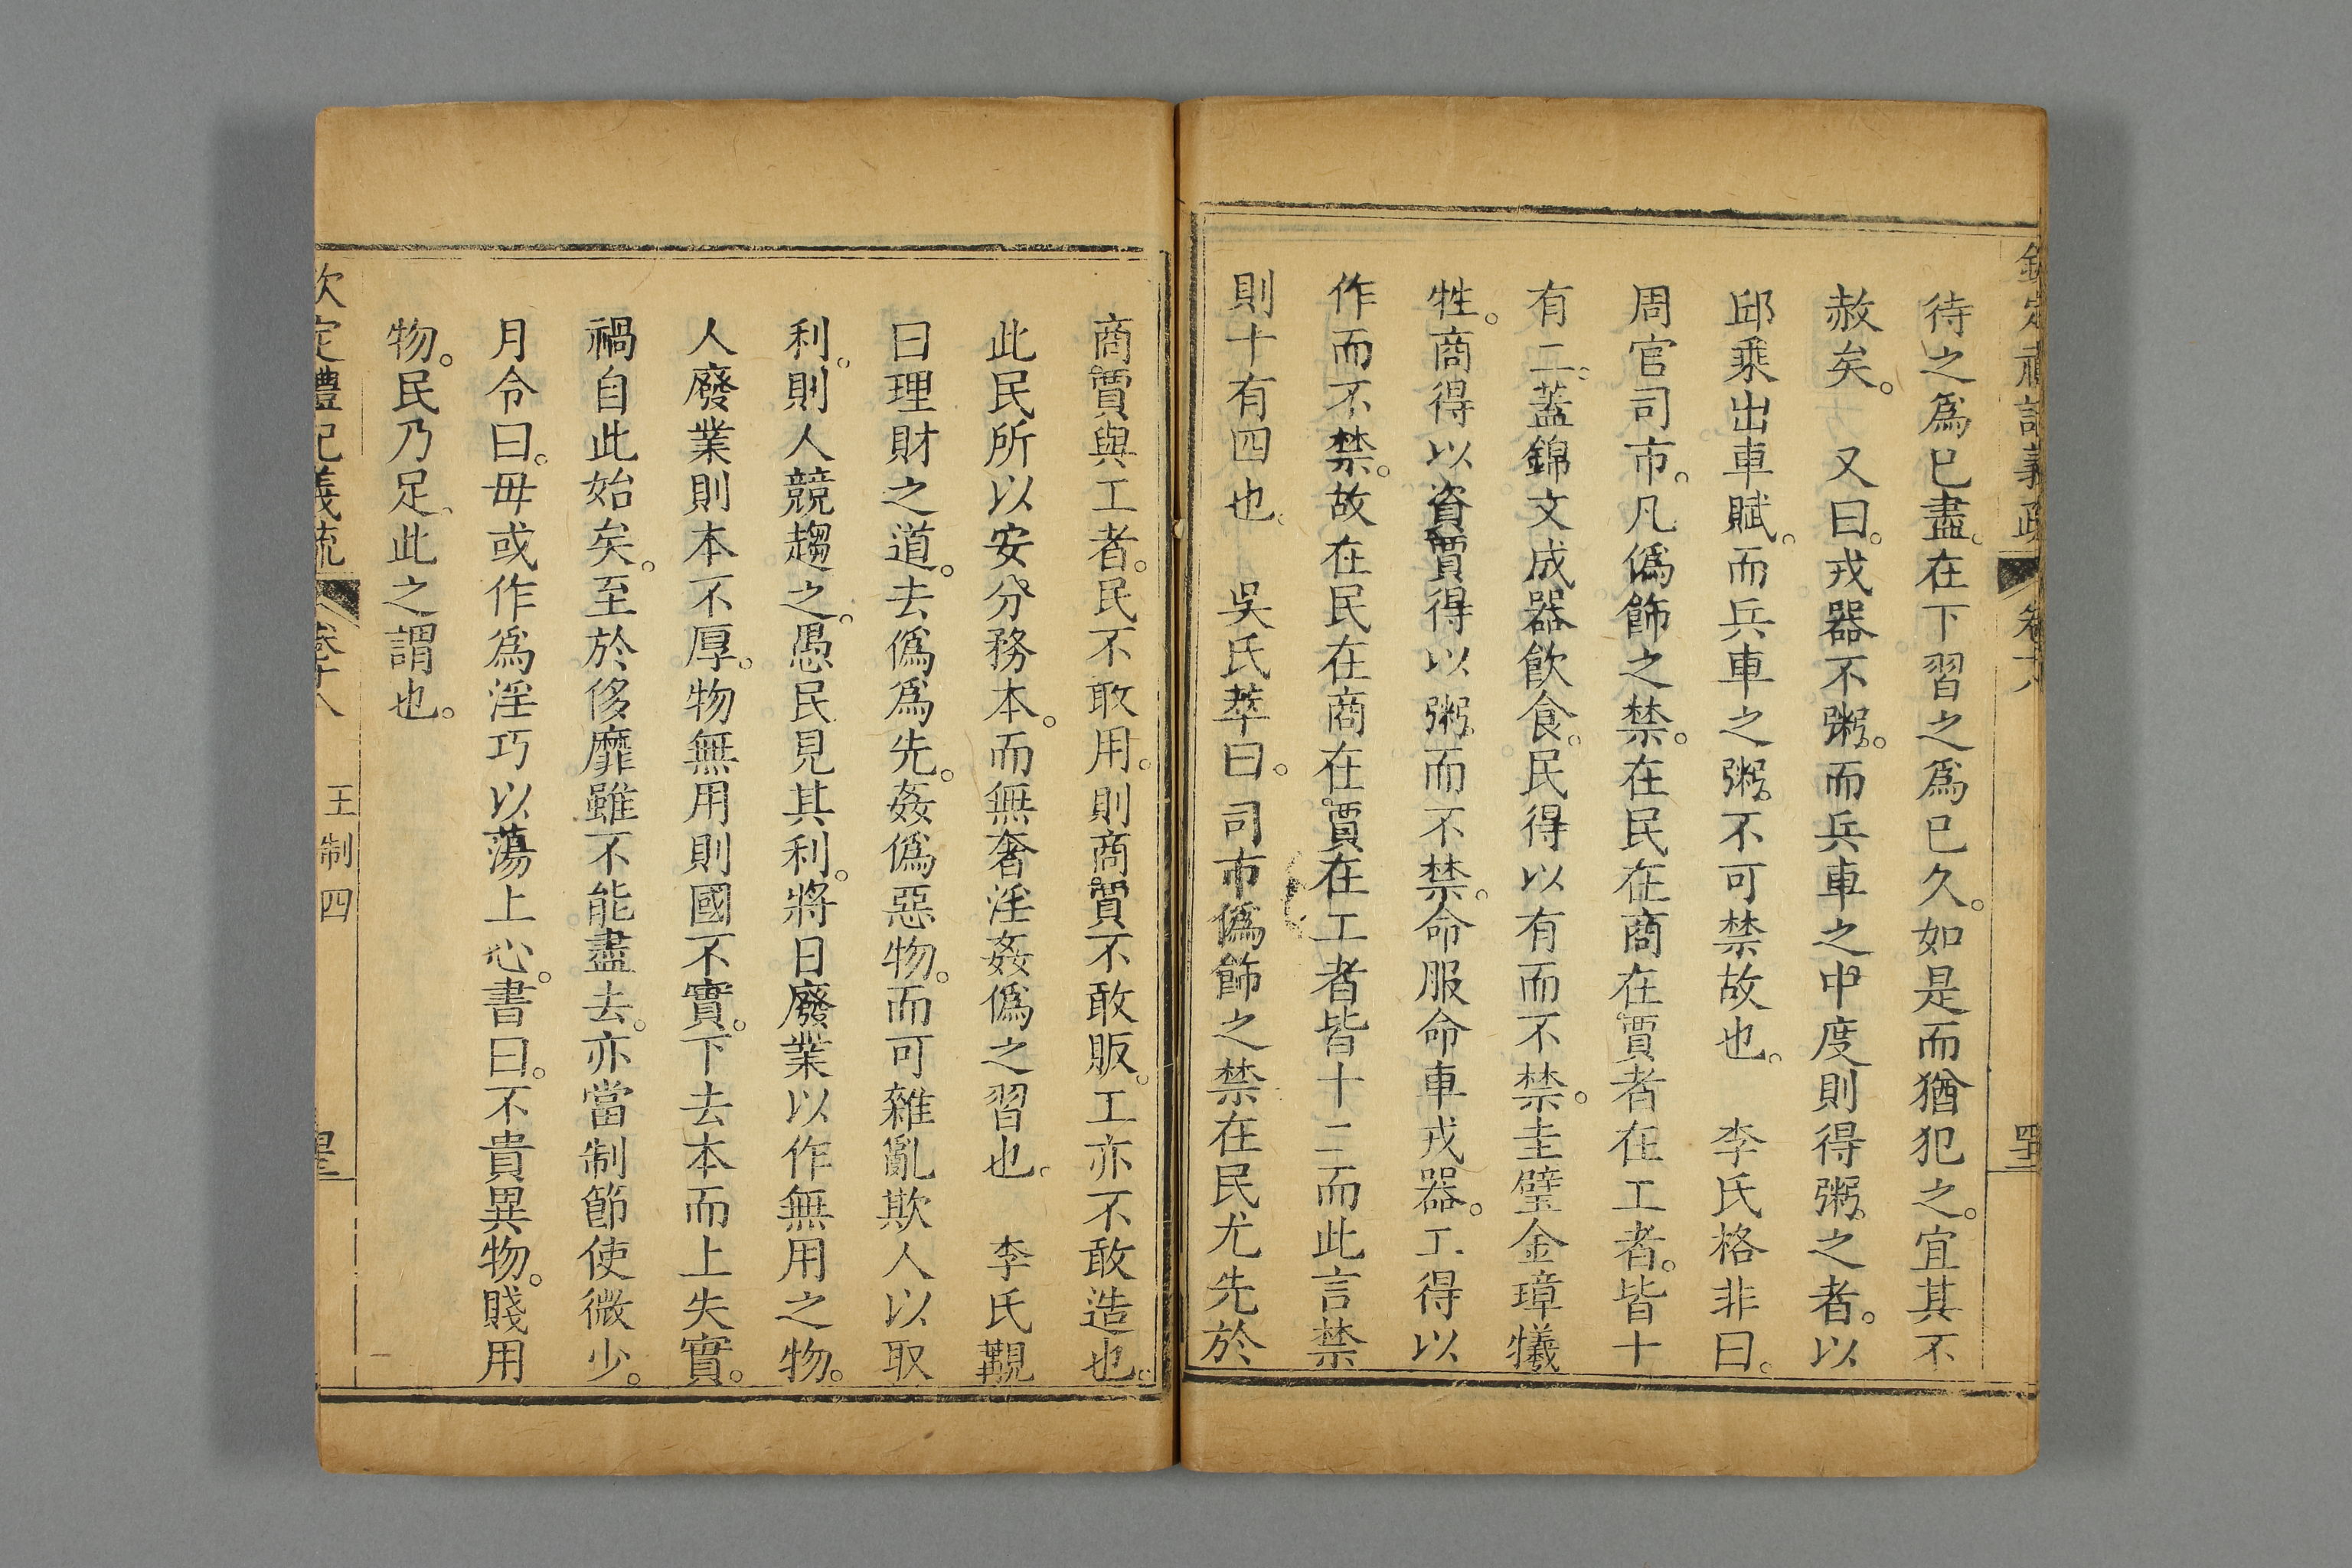 欽定禮記義疏 卷十八
待之爲已盡。在下習之爲已久。如是而猶犯之。宜其不
赦矣。 又曰。戎器不粥。而兵車之中度則得粥之者。以
邱乘出車賦。而兵車之粥。不可禁故也。 李氏格非曰。
周官司市。凡僞飾之禁。在民在商在賈者在工者。皆十
有二。蓋錦文成器飮食。民得以有而不禁。圭璧金璋犧
牲。商得以資賈得以粥。而不禁。命服命車戎器。工得以
作而不禁。故在民在商在賈在工者皆十二而此言禁
則十有四也。 吳氏莘曰。司市僞飾之禁在民尤先於
商賈與工者。民不敢用。則商賈不敢販。工亦不敢造也。
此民所以安分務本。而無奢淫姦僞之習也。 李氏覯
曰理財之道。去僞爲先。姦僞惡物。而可雜亂欺人以取
利。則人競趨之。愚民見其利。將日廢業以作無用之物。
人廢業則本不厚。物無用則國不實。下去本而上失實。
禍自此始矣。至於侈靡雖不能盡去。亦當制節使微少。
月令曰。毋或作爲淫巧以蕩上心。書曰。不貴異物。賤用
物。民乃足。此之謂也。
欽定禮記義疏 卷十八 王制四